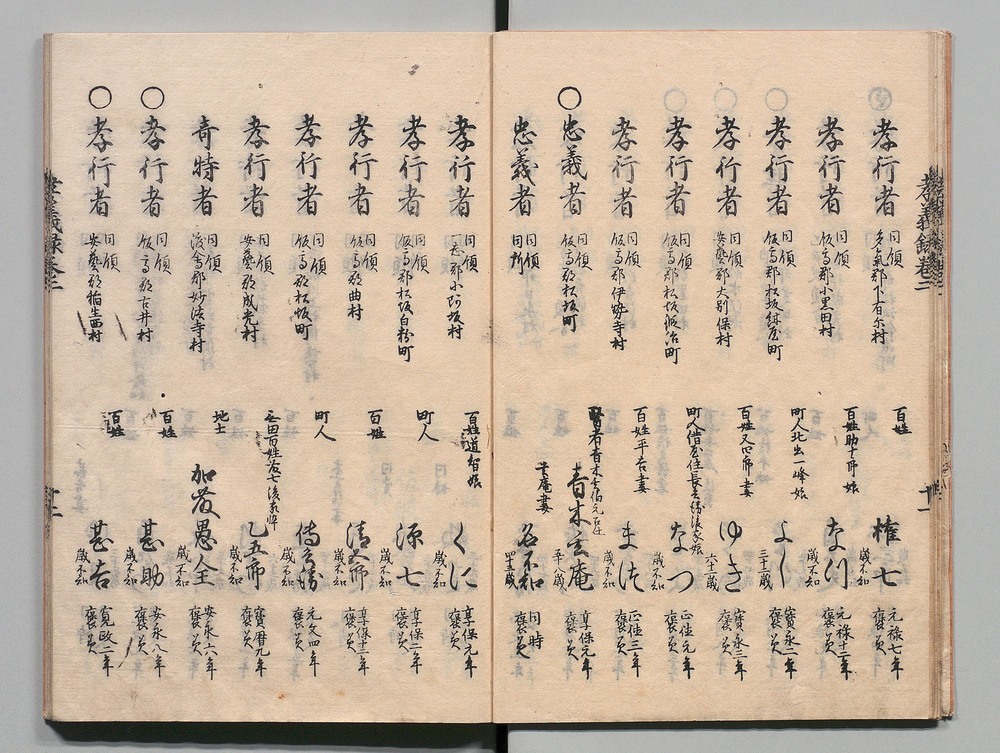 孝行者 同領 多氣郡下有尓村 百姓 権七 歳不知 元禄七年 褒美
孝行者 同領 飯高郡小黒田村 百姓助十郎娘 なつ 歳不知 元禄十二年 褒美
○ 孝行者 同領 飯高郡松坂 町人 娘 よし 三十二歳 寳永二年 褒美
○ 孝行者 同領 安藝郡大別保村 百姓又四郎妻 ゆき 六十二歳 寳永三年 褒美
○ 孝行者 同領 飯高郡松坂鍛冶町 町人 なつ 歳不知 正徳元年 褒美
孝行者 同領 飯高郡伊勢寺村 百姓平吉妻 まつ 歳不知 正徳三年 褒美
○ 忠義者 同領 飯高郡松坂町 青木玄庵 享保元年 褒美
忠義者 同領 同所 玄庵妻 名不知 同時 褒美
孝行者 同領 一志郡小阿坂村 百姓道智娘 くに 歳不知 享保元年 褒美
孝行者 同領 飯高郡松坂白粉町 町人 源七 歳不知 享保二年 褒美
孝行者 同領 飯高郡曲村 百姓 清五郎 歳不知 享保十二年 褒美
孝行者 同領 飯高郡松坂町 町人 歳不知 元文四年 褒美
孝行者 同領 安藝郡成光村 乙五郎 歳不知 寳暦九年 褒美
奇特者 同領 渡會郡妙法寺村 地士 加藤愚全 歳不知 安永六年 褒美
○ 孝行者 同領 飯高郡古井村 百姓 甚助 歳不知 安永八年 褒美
○ 孝行者 同領 安藝郡稲生西村 百姓 甚吉 歳不知 寛政二年 褒美
孝義録巻三
十一